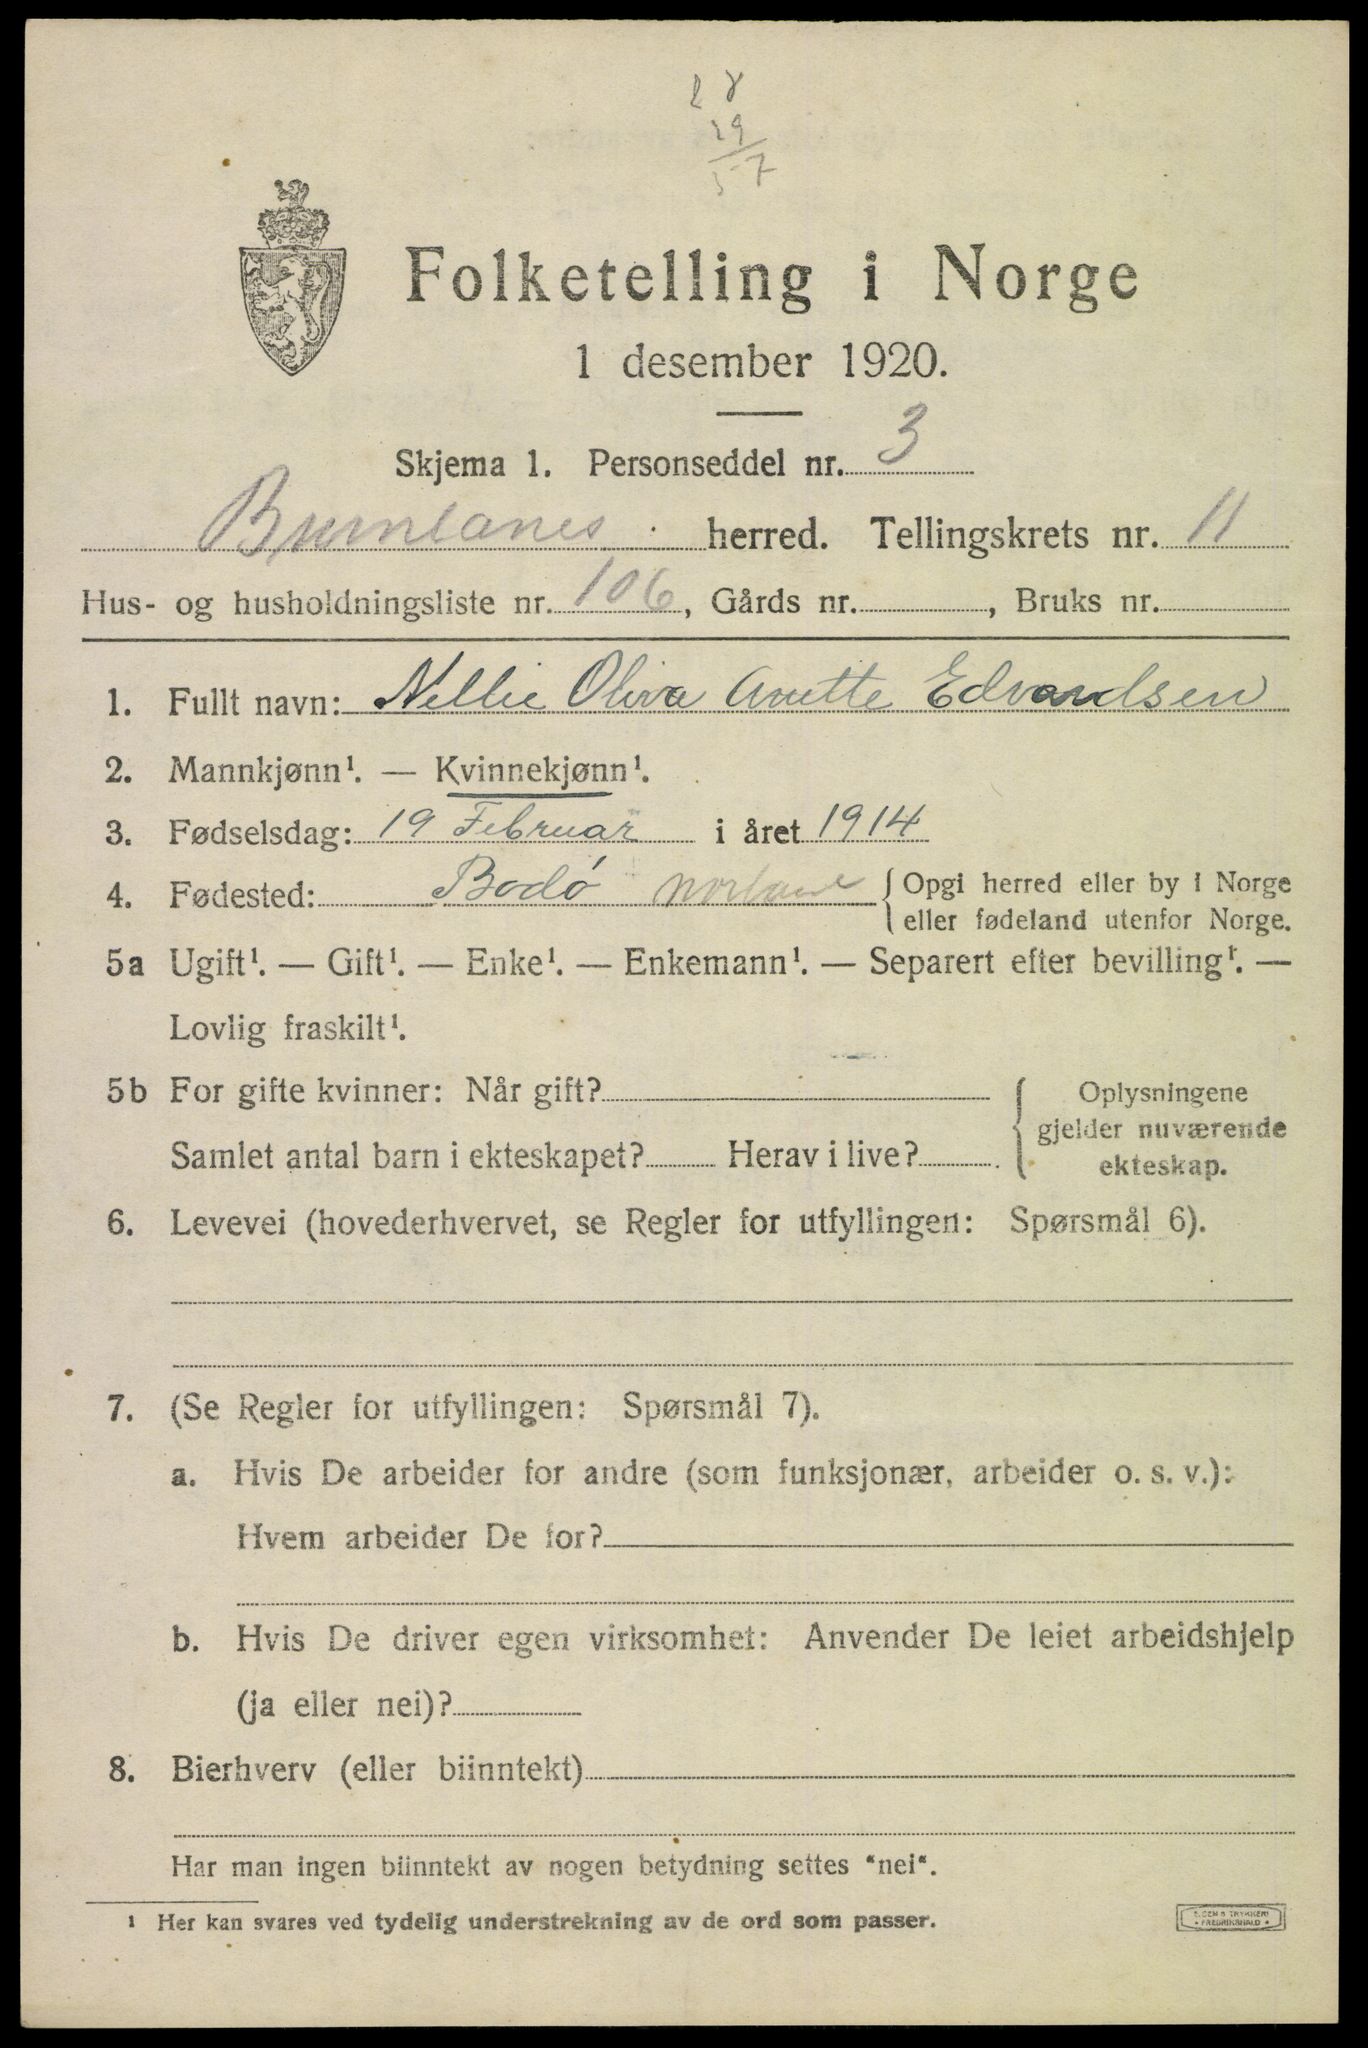 28
29
57
Folketelling i Norge
1 desember 1920.
Skjema 1. Personseddel nr. 3
Brunlanes herred. Tellingskrets nr. 11
Hus- og husholdningsliste nr. 106, Gårds nr. , Bruks nr.
1. Fullt navn: Nellie Oliva Anette Edvardsen
2. Mannkjønn¹. — Kvinnekjønn¹.
3. Fødselsdag: 19 Februar i året 1914
4. Fødested: Bodø Norland { Opgi herred eller by i Norge
eller fødeland utenfor Norge.
5a Ugift¹. — Gift¹. — Enke¹. — Enkemann¹. — Separert efter bevilling¹. —
Lovlig fraskilt¹.
5b For gifte kvinner: Når gift? { Oplysningene
gjelder nuværende
Samlet antal barn i ekteskapet? Herav i live? .
ekteskap.
6. Levevei (hovederhvervet, se Regler for utfyllingen: Spørsmål 6).
7. (Se Regler for utfyllingen: Spørsmål 7).
a. Hvis De arbeider for andre (som funksjonær, arbeider o. s. v.):
Hvem arbeider De for?
b. Hvis De driver egen virksomhet: Anvender De leiet arbeidshjelp
(ja eller nei)?
8. Bierhverv (eller biinntekt)
Har man ingen biinntekt av nogen betydning settes "nei".
¹ Her kan svares ved tydelig understrekning av de ord som passer.
TRYKKERI
FREDRIKSHALD